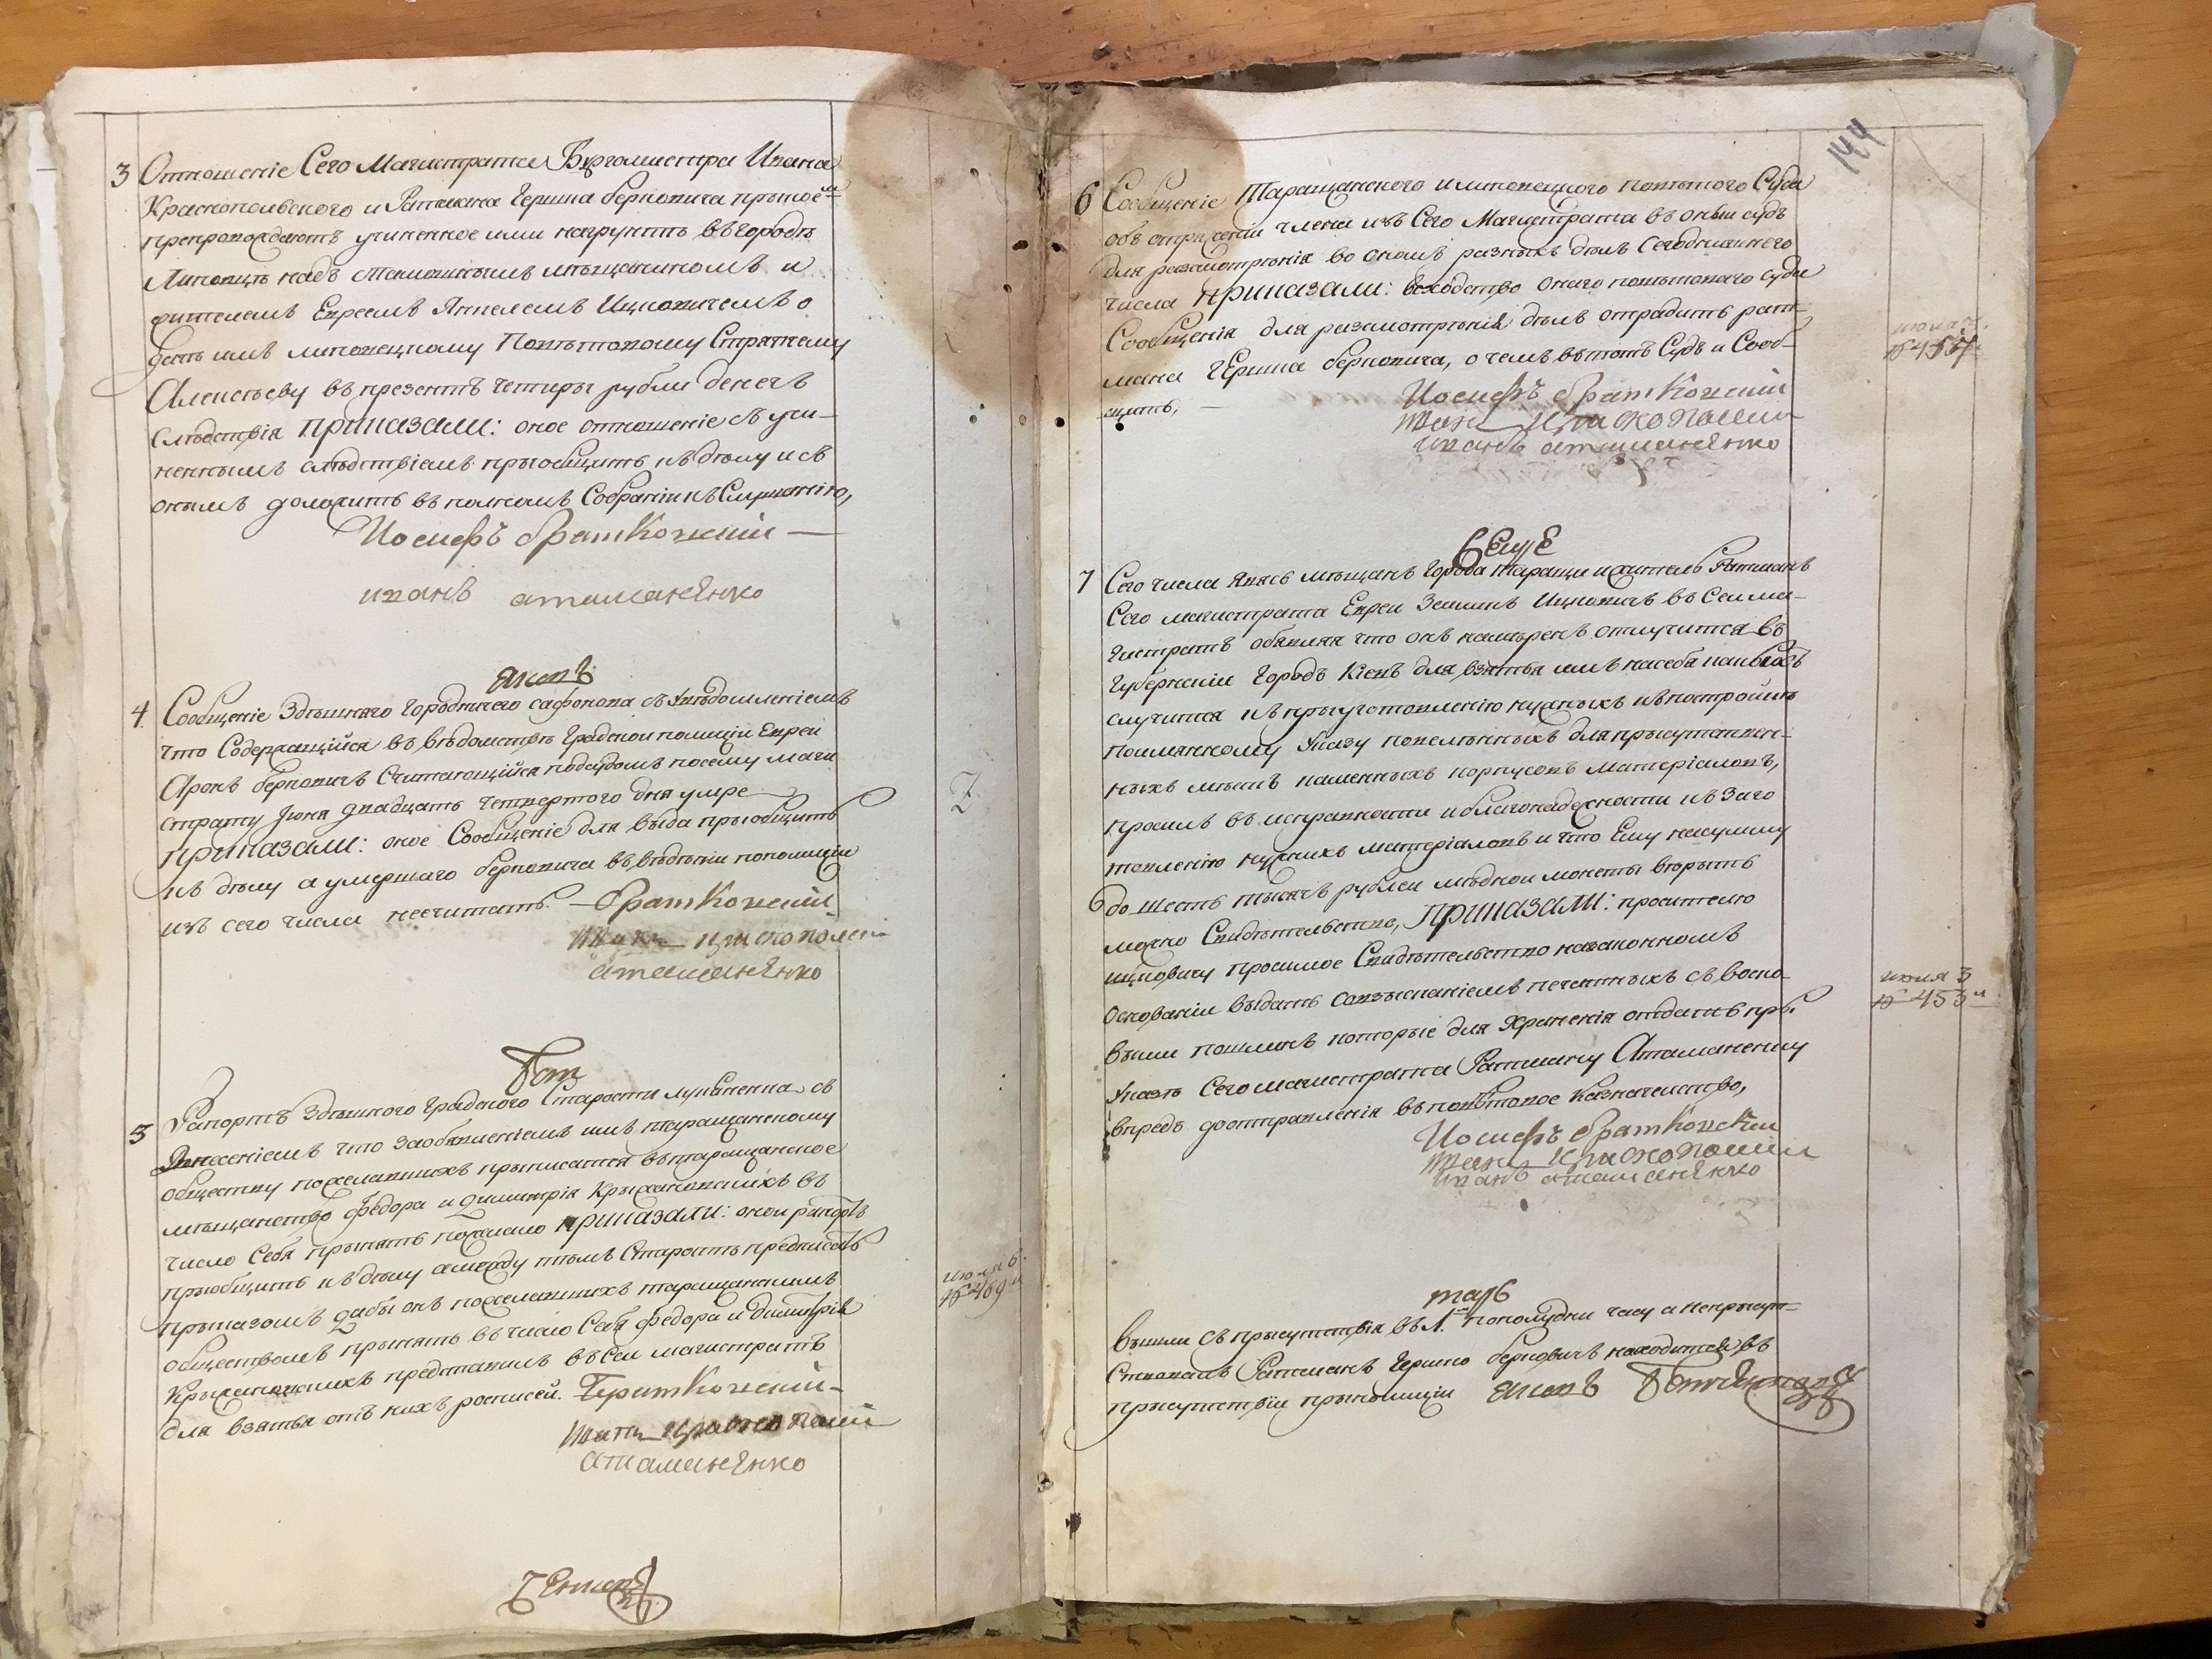 3 Отношеніе Сего Магистрата Бургомистра Ивана
Краснопольского и Ратмана Гершка берковича при коемъ
препровождаютъ учиненное ими на грунтѣ въ городѣ
Липовцѣ надъ тамошнымъ мѣщаниномъ и
жителемъ Евреемъ Янкелемъ Ицковичемъ о
дачѣ имъ липовецкому Повѣтовому Стряпчему
Алексѣеву въ презентѣ четыры рубли денегъ
слѣдствія Приказали: оное отношеніе съ учи-
неннымъ слѣдствіемъ пріобщить къ дѣлу и съ
онымъ доложить въ полномъ Собраніи къ Слушанію,
Иосифъ братковскій —
иванъ атаманенко
4. Сообщеніе Здѣшняго Городничего сафонова съ увѣдомленіемъ
что Содержащійся въ вѣдомствѣ Градской полиціи Еврей
Аронъ берковичъ Считающійся подсудомъ по сему маги
страту Іюня двадцать четвертого дня умре
приказали: оное Сообщеніе для вида пріобщить
къ дѣлу а умершаго берковича въ вѣденіи по полиціи
изъ сего числа несчитать. — братковскій
атаманенко
5 Рапортъ Здѣшнего Градского Старосты лукьяненка съ
Внесеніемъ что за объявленіемъ имъ таращанскому
обществу пожелавшихъ прыписатся въ таращанское
мѣщанство федора и димитрія Крыжановскихъ въ
число Себя прынять пожелало приказали: оной рапортъ
пріобщить къ дѣлу а между тѣмъ Старостѣ предписать
прыказомъ дабы онъ пожелавшихъ таращанскимъ
обществомъ прынять въ число Себя федора и Димитрія
Крыжановскихъ представилъ въ Сей магистратъ
для взятья отъ нихъ росписей. Братковскій
атаманенко
июля 6.
№ 469
144
6 Сообщеніе Таращанского и липовецкого повѣтового Суда
объ отряженіи члена изъ Сего Магистрата въ оный судъ
для разсмотрѣнія во ономъ разныхъ дѣлъ Сегоднишнего
числа приказали: въ сходство Онаго повѣтоваго суда
Сообщенія для разсмотрѣнія дѣлъ отрядить рат-
мана Гершка берковича, о чемъ въ тотъ Судъ и Сооб-
щить, —
Иосифъ братковскій
иванъ атаманенко
7 Сего числа явясь мѣщанъ Города Таращи и житель Ратманъ
Сего магистрата Еврей Зельманъ Ицковичъ въ Сей ма-
гистратъ объявлял что онъ намѣренъ отлучится въ
Губернскій Городъ Кіевъ для взятья имъ на себя какъ
случится къ прыуготовленію нужныхъ къ постройкѣ
по имянному Указу повелѣнныхъ для прысутствен-
ныхъ мѣстъ каменныхъ корпусовъ матеріаловъ,
просилъ въ исправности и благонадежности къ заго
товленію нужныхъ матеріаловъ и что Ему на сумму
до шесть тысячъ рублей мѣдной монеты вѣрыть
можно Свидѣтельство, ПРИКАЗАЛИ: просителю
ицковичу просимое Свидѣтельство на законномъ
Основаніи выдать со взысканіемъ печатныхъ съ воско-
выми пошлинъ которые для храненія отдать пры
Указѣ Сего магистрата Ратману Атаманенку
впредь до отправленія въ повѣтовое Казначейство,
Иосифъ братковскій
иванъ атаманенко
июля 3
№ 453
вышли съ прысутствія въ 1. пополудни часу а неприсут-
ствовалъ Ратманъ Гершко берковичъ находится въ
прысутствіи прыполиціи